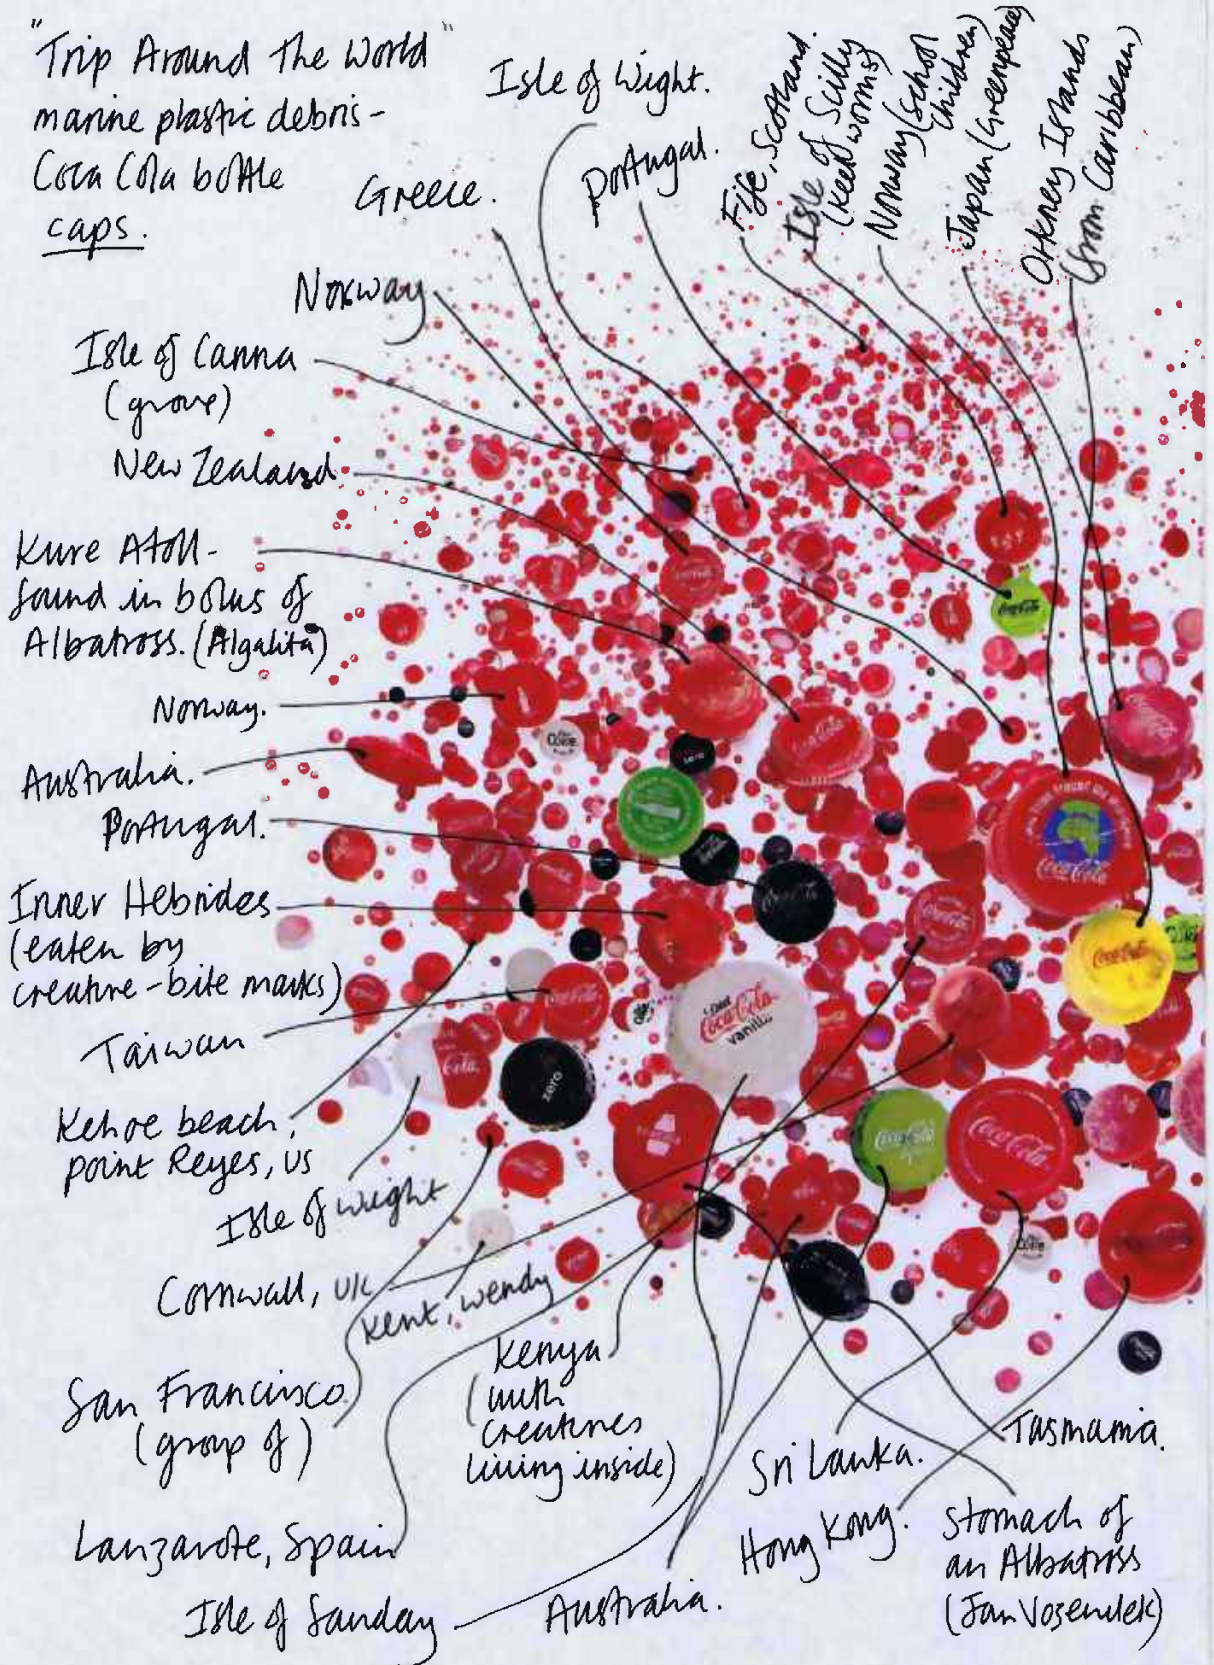 "Trip Around The World"
marine plastic debris -
Coca Cola bottle
caps.
Isle of Wight.
Portugal.
Fife, Scotland.
Isle of Scilly
(Keel worms)
Norway (school
children)
Japan (Greenpeace)
Orkney Islands
(from Caribbean)
Greece.
Norway
Isle of Canna
(group)
New Zealand
Kure Atoll -
found in bolus of
Albatross. (Algalita)
Norway.
Australia.
Portugal.
Inner Hebrides
(eaten by
creature - bite marks)
Taiwan
Kehoe beach,
point Reyes, US
Isle of Wight
Cornwall, UK
Kent, Wendy
San Francisco
(group of)
Kenya
(with
creatures
living inside)
Lanzarote, Spain
Isle of Sanday
Australia.
Sri Lanka.
Hong Kong.
Tasmania.
Stomach of
an Albatross
(Jan Vozenilek)
Coca-Cola
Coke
zero
Coca-Cola
Coca-Cola
Coca-Cola
Coca-Cola
Diet
Coca-Cola
vanill
Coca-Cola
Cola
zero
Coca-Cola
Coca-Cola
Coke